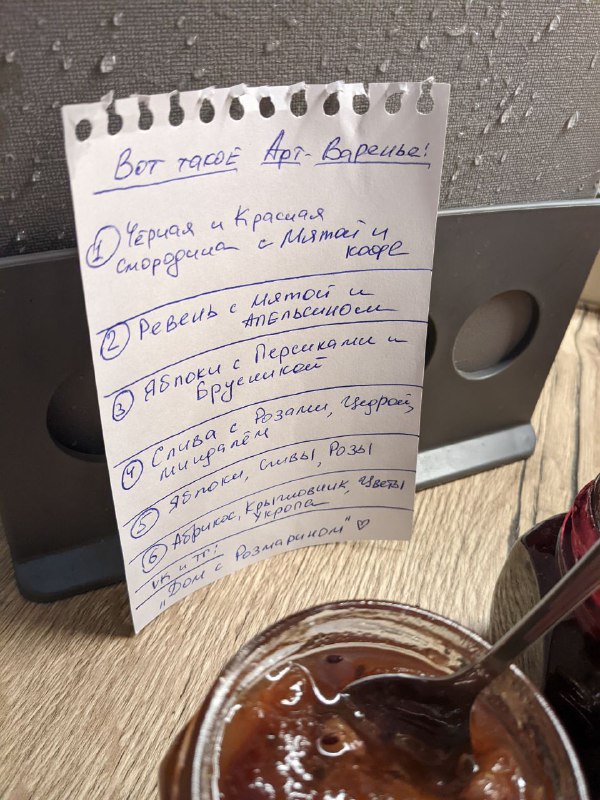 Вот такое Арт-Варенье!
1 Чёрная и Красная
смородина с Мятой и
кофе
2 Ревень с Мятой и
Апельсином
3 Яблоки с Персиками и
Брусникой
4 Слива с Розами, Цедрой,
миндалём
5 Яблоки, сливы, Розы
6 Абрикос, Крыжовник, Цветы
Укропа
VK и тг:
"Дом с Розмарином" ♡